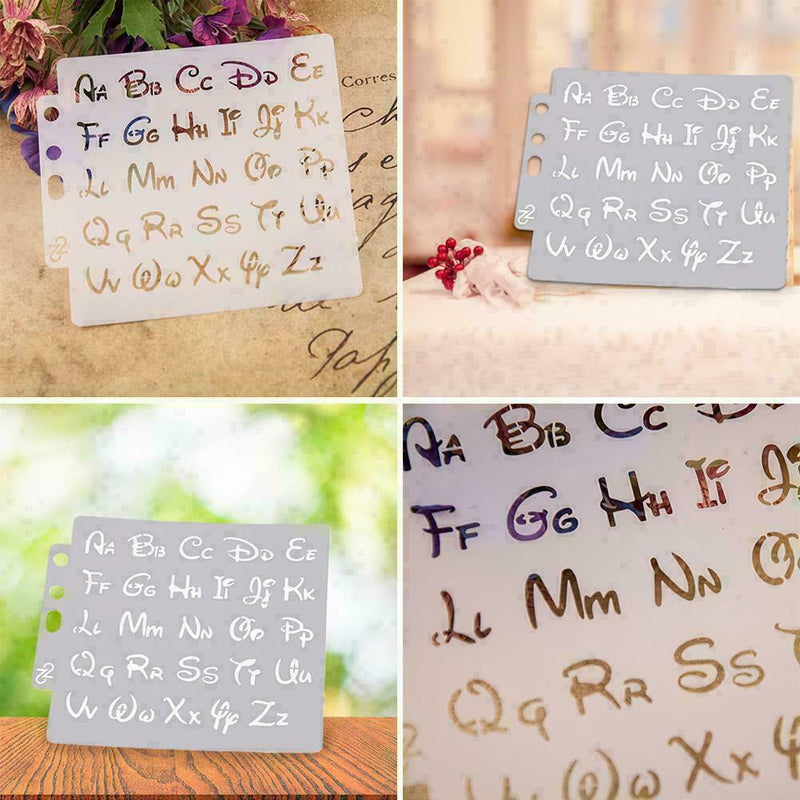 Aa Bb Cc Dd Ee
Ff Gg Hh Ii Jj Kk
Ll Mm Nn Oo Pp
Qq Rr Ss Tt Uu
Vv Ww Xx Yy Zz
Corres
Pap
Aa Bb Cc Dd Ee
Ff Gg Hh Ii Jj Kk
Ll Mm Nn Oo Pp
Qq Rr Ss Tt Uu
Vv Ww Xx Yy Zz
Aa Bb Cc Dd Ee
Ff Gg Hh Ii Jj Kk
Ll Mm Nn Oo Pp
Qq Rr Ss Tt Uu
Vv Ww Xx Yy Zz
Aa Bb Cc D
Ff Gg Hh Ii J
Ll Mm Nn O
Qq Rr Ss
Ww Xx